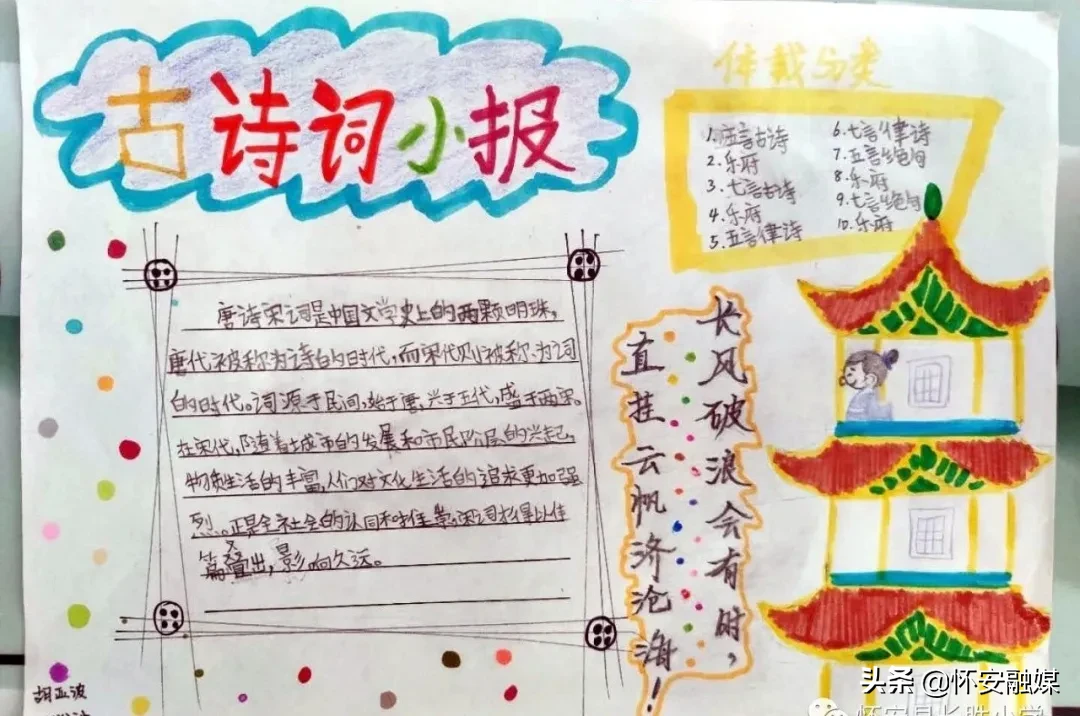 古诗词小报
体裁分类
1.五言古诗
2.乐府
3.七言古诗
4.乐府
5.五言律诗
6.七言律诗
7.五言绝句
8.乐府
9.七言绝句
10.乐府
唐诗宋词是中国文学史上的两颗明珠,
唐代被称为诗的时代,而宋代则被称为词
的时代。词源于民间,始于唐,兴于五代,盛于两宋。
在宋代,随着城市的发展和市民阶层的兴起,
物质生活的丰富,人们对文化生活的追求更加强
烈。正是全社会的认同和推崇,宋词才得以佳
篇叠出,影响久远。
长风破浪会有时,
直挂云帆济沧海!
胡亚波
头条 @怀安融媒
怀安县长胜小学